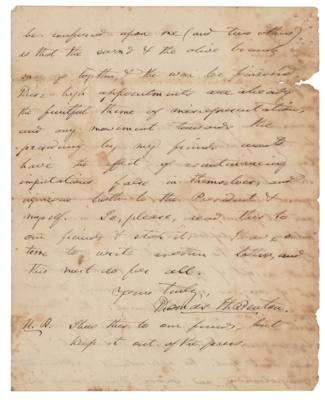 be conferred upon me (and two others)
is that the sword & the olive branch
go together, & the war be finished
These high appointments are already
the fruitful theme of misrepresentation,
and any movement towards the
presidency by my friends would
have the effect of countenancing
imputations false in themselves, and
injurious both to the President &
myself. So, please, read this to
our friends & stop it.
time to write another letter, and
this must do for all.
Yours truly,
Thomas H. Benton.
N. B. Show this to our friends, but
keep it out of the press.